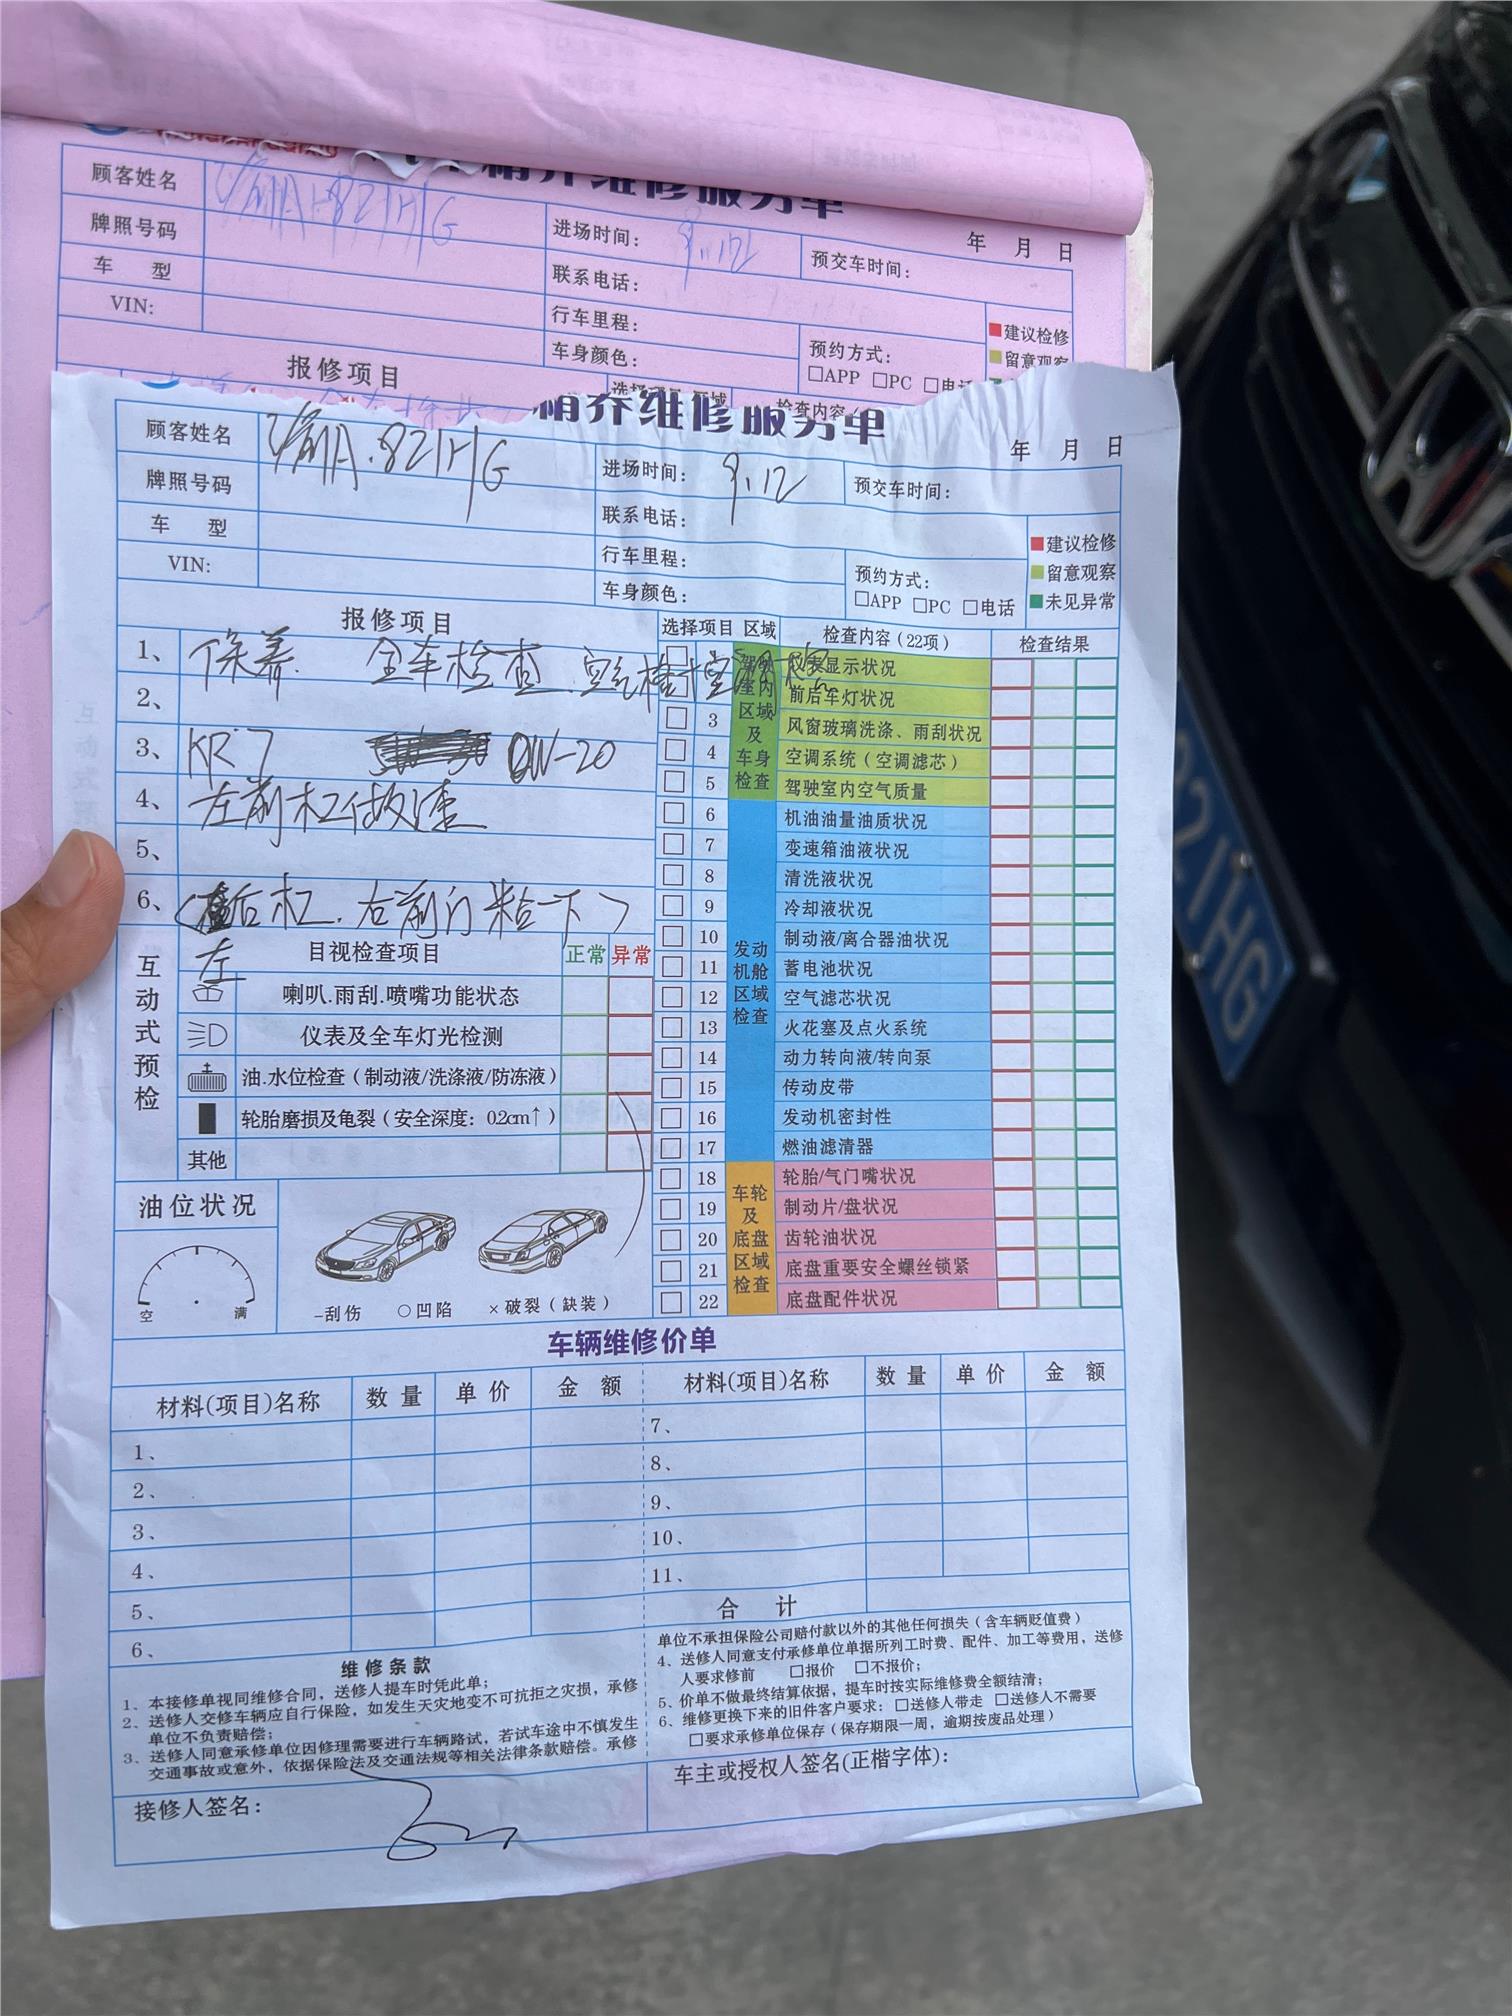 精养维修服务单
年 月 日
顾客姓名
牌照号码
车 型
VIN:
A·821HG
进场时间: 9.12
预交车时间:
联系电话:
行车里程:
车身颜色:
预约方式:
□APP □PC □电话
建议检修
留意观察
报修项目
选择项目 区域 检查内容
精养维修服务单
年 月 日
顾客姓名 A.821HG
牌照号码
车 型
VIN:
进场时间: 9.12
预交车时间:
联系电话:
行车里程:
车身颜色:
预约方式:
□APP □PC □电话
建议检修
留意观察
未见异常
报修项目
1、保养. 全车检查. 空气格 空调格
2、
3、KR7 0W-20
4、左前杠做漆
5、
6、<后杠. 右前门粘一下>
左
互动式预检
目视检查项目 正常 异常
喇叭.雨刮.喷嘴功能状态
仪表及全车灯光检测
油.水位检查(制动液/洗涤液/防冻液)
轮胎磨损及龟裂(安全深度: 0.2cm↑)
其他
油位状况
空 满
-刮伤 ○凹陷 ×破裂(缺装)
选择项目 区域 检查内容(22项) 检查结果
驾驶室内区域及车身检查
仪表显示状况
前后车灯状况
3 风窗玻璃洗涤、雨刮状况
4 空调系统(空调滤芯)
5 驾驶室内空气质量
发动机舱区域检查
6 机油油量油质状况
7 变速箱油液状况
8 清洗液状况
9 冷却液状况
10 制动液/离合器油状况
11 蓄电池状况
12 空气滤芯状况
13 火花塞及点火系统
14 动力转向液/转向泵
15 传动皮带
16 发动机密封性
17 燃油滤清器
车轮及底盘区域检查
18 轮胎/气门嘴状况
19 制动片/盘状况
20 齿轮油状况
21 底盘重要安全螺丝锁紧
22 底盘配件状况
车辆维修价单
材料(项目)名称 数 量 单 价 金 额 材料(项目)名称 数 量 单 价 金 额
1、 7、
2、 8、
3、 9、
4、 10、
5、 11、
6、 合 计
维修条款
1、本接修单视同维修合同，送修人提车时凭此单；
2、送修人交修车辆应自行保险，如发生天灾地变不可抗拒之灾损，承修
单位不负责赔偿；
3、送修人同意承修单位因修理需要进行车辆路试，若试车途中不慎发生
交通事故或意外，依据保险法及交通法规等相关法律条款赔偿。承修
单位不承担保险公司赔付款以外的其他任何损失(含车辆贬值费)
4、送修人同意支付承修单位单据所列工时费、配件、加工等费用，送修
人要求修前 □报价 □不报价；
5、价单不做最终结算依据，提车时按实际维修费全额结清；
6、维修更换下来的旧件客户要求: □送修人带走 □送修人不需要
□要求承修单位保存(保存期限一周，逾期按废品处理)
接修人签名:
车主或授权人签名(正楷字体):
821HG